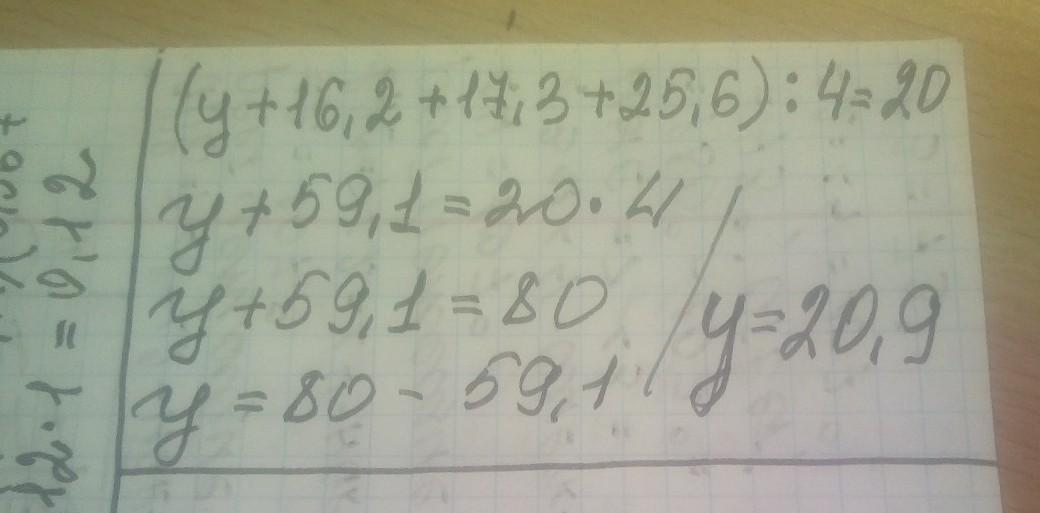 (y+16,2+17,3+25,6):4=20
y+59,1=20·4
y+59,1=80
y=80-59,1
y=20,9
12·1=9,12